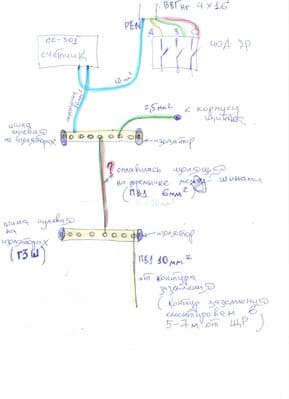 ВВГнг 4×16
PEN
А В С
СЕ-301
счетчик
2,5мм²
к корпусу
щитка
шина
нулевая
изолятор
?
оплавилась изоляция
на перемычке между шинами
(ПВ1 6мм²)
шина нулевая
на
изоляторах
(ГЗШ)
изолятор
ПВ1 10мм²
от контура
заземления
(контур заземления
смонтирован в
5-7м от ЩР)